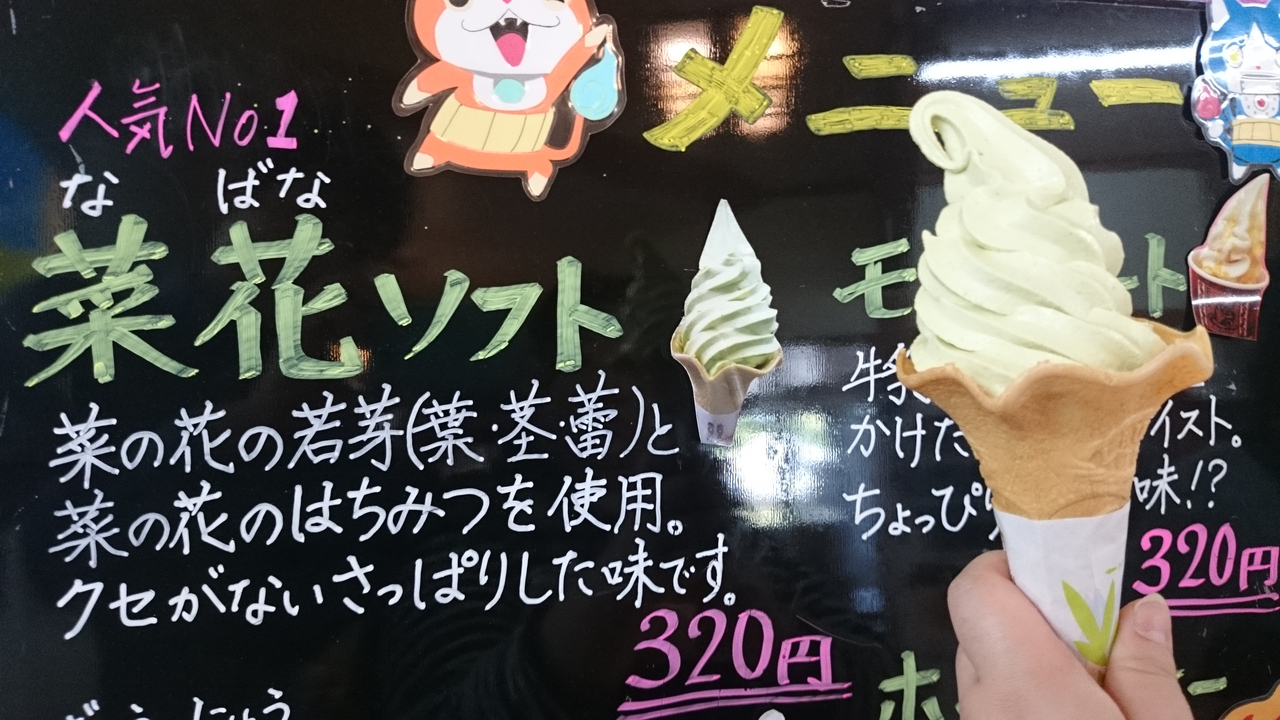 メニュー
人気No1
な ばな
菜花ソフト
菜の花の若芽(葉・茎・蕾)と
菜の花のはちみつを使用。
クセがないさっぱりした味です。
320円
モ ート
牛乳
かけた イスト。
ちょっぴり 味!?
320円